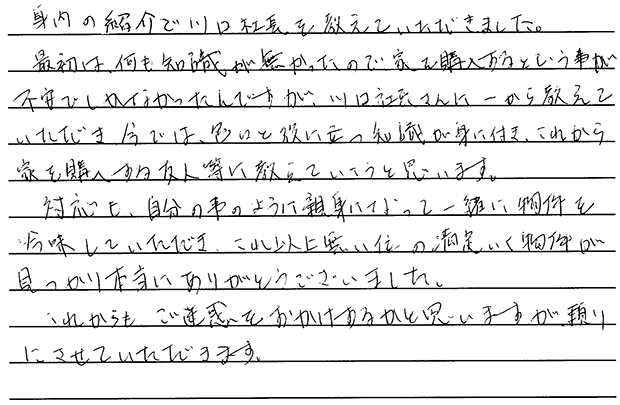 身内の紹介で川口社長を教えていただきました。
最初は、何も知識が無かったので家を購入するという事が
不安でしかなかったんですが、川口社長さんに一から教えて
いただき今では、色々と役に立つ知識が身に付き、これから
家を購入する友人等に教えていこうと思います。
対応も、自分の事のように親身になって一緒に物件を
吟味していただき、これ以上無い位の満足いく物件が
見つかり本当にありがとうございました。
これからも、ご迷惑をおかけするかと思いますが、頼り
にさせていただきます。